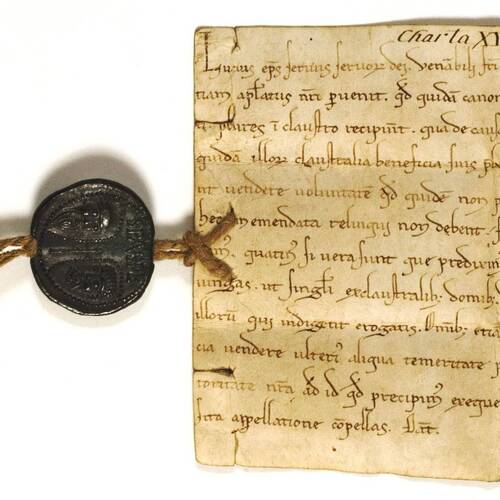 Charta XV
Lucius eps seruus seruor dei. Venabilib fri
tiam aplatus nri peruenit. qd quidā canon
t. pares ī claustro recipiūt. qua de caus
quidā illor claustralia beneficia suis p
ut uendere uoluntate qd quidē non p
hec inemendata relinqui non debent.
quatin si uera sunt que predixim
iungas. ut singli exclaustralib; domib;
illorū qui indigēt erogatis. Omib; etiā
cia uendere ulteri aliqua temeritate p
toritate nra ad id qd precipim exeque
sita appellatione cōpellas. Dat.